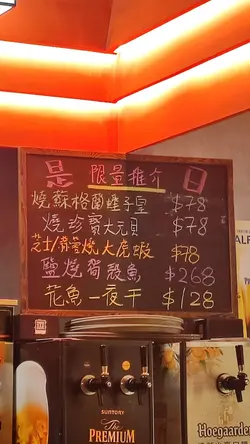 是 限量推介 日
燒蘇格蘭蟶子皇 $78
燒珍寶大元貝 $78
芝士/蒜蓉燒大虎蝦 $78
鹽燒筍殼魚 $268
花魚一夜干 $128
SUNTORY
The
PREMIUM
Hoegaarden